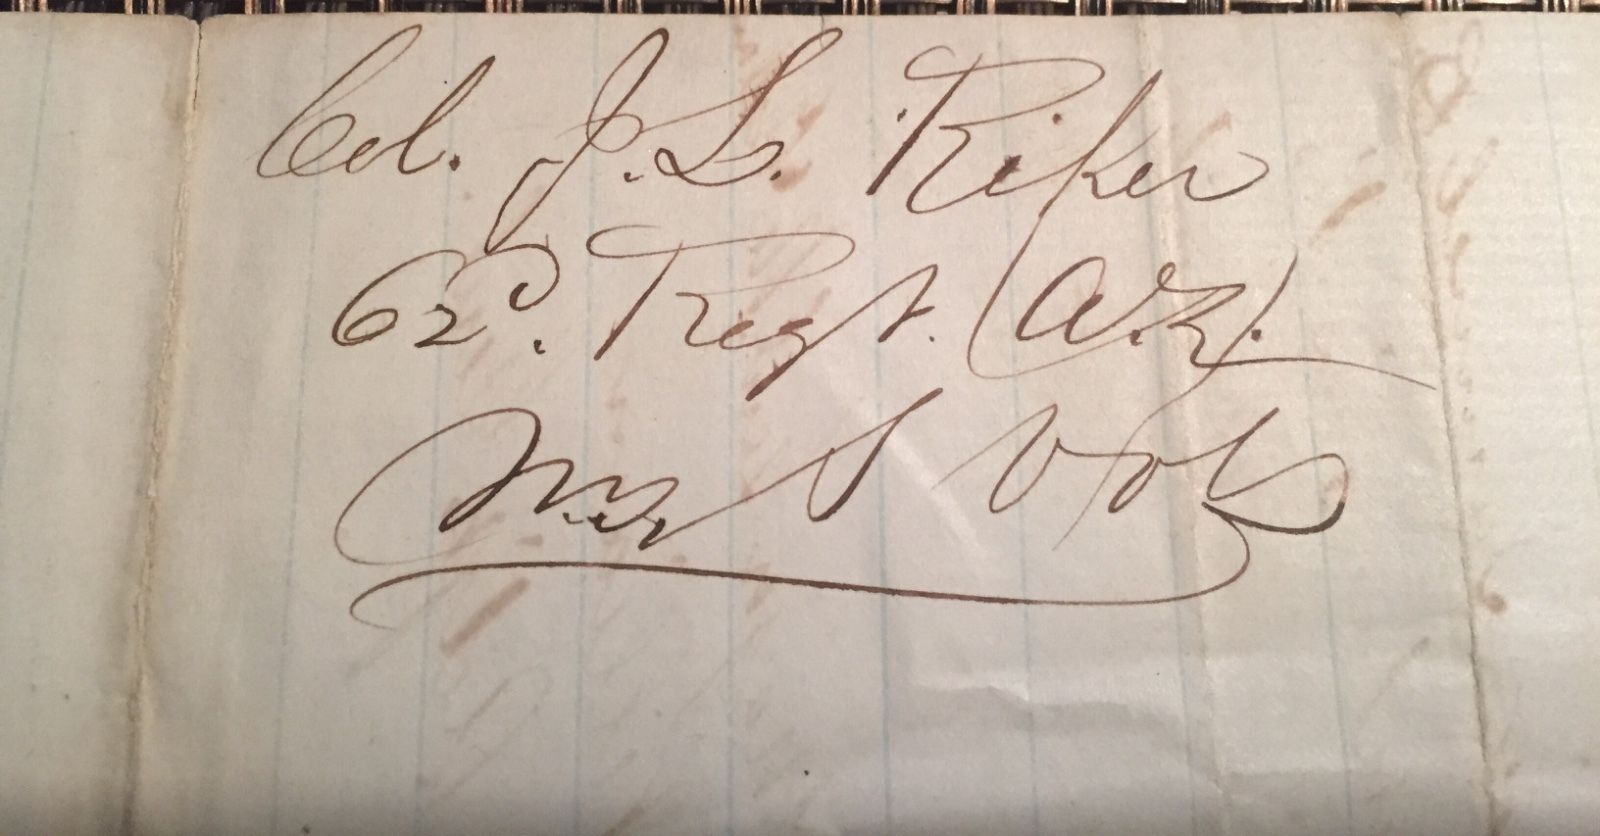 Col. J. L. Riker
62d. Regt. (A.Z).
N.Y. S Vols